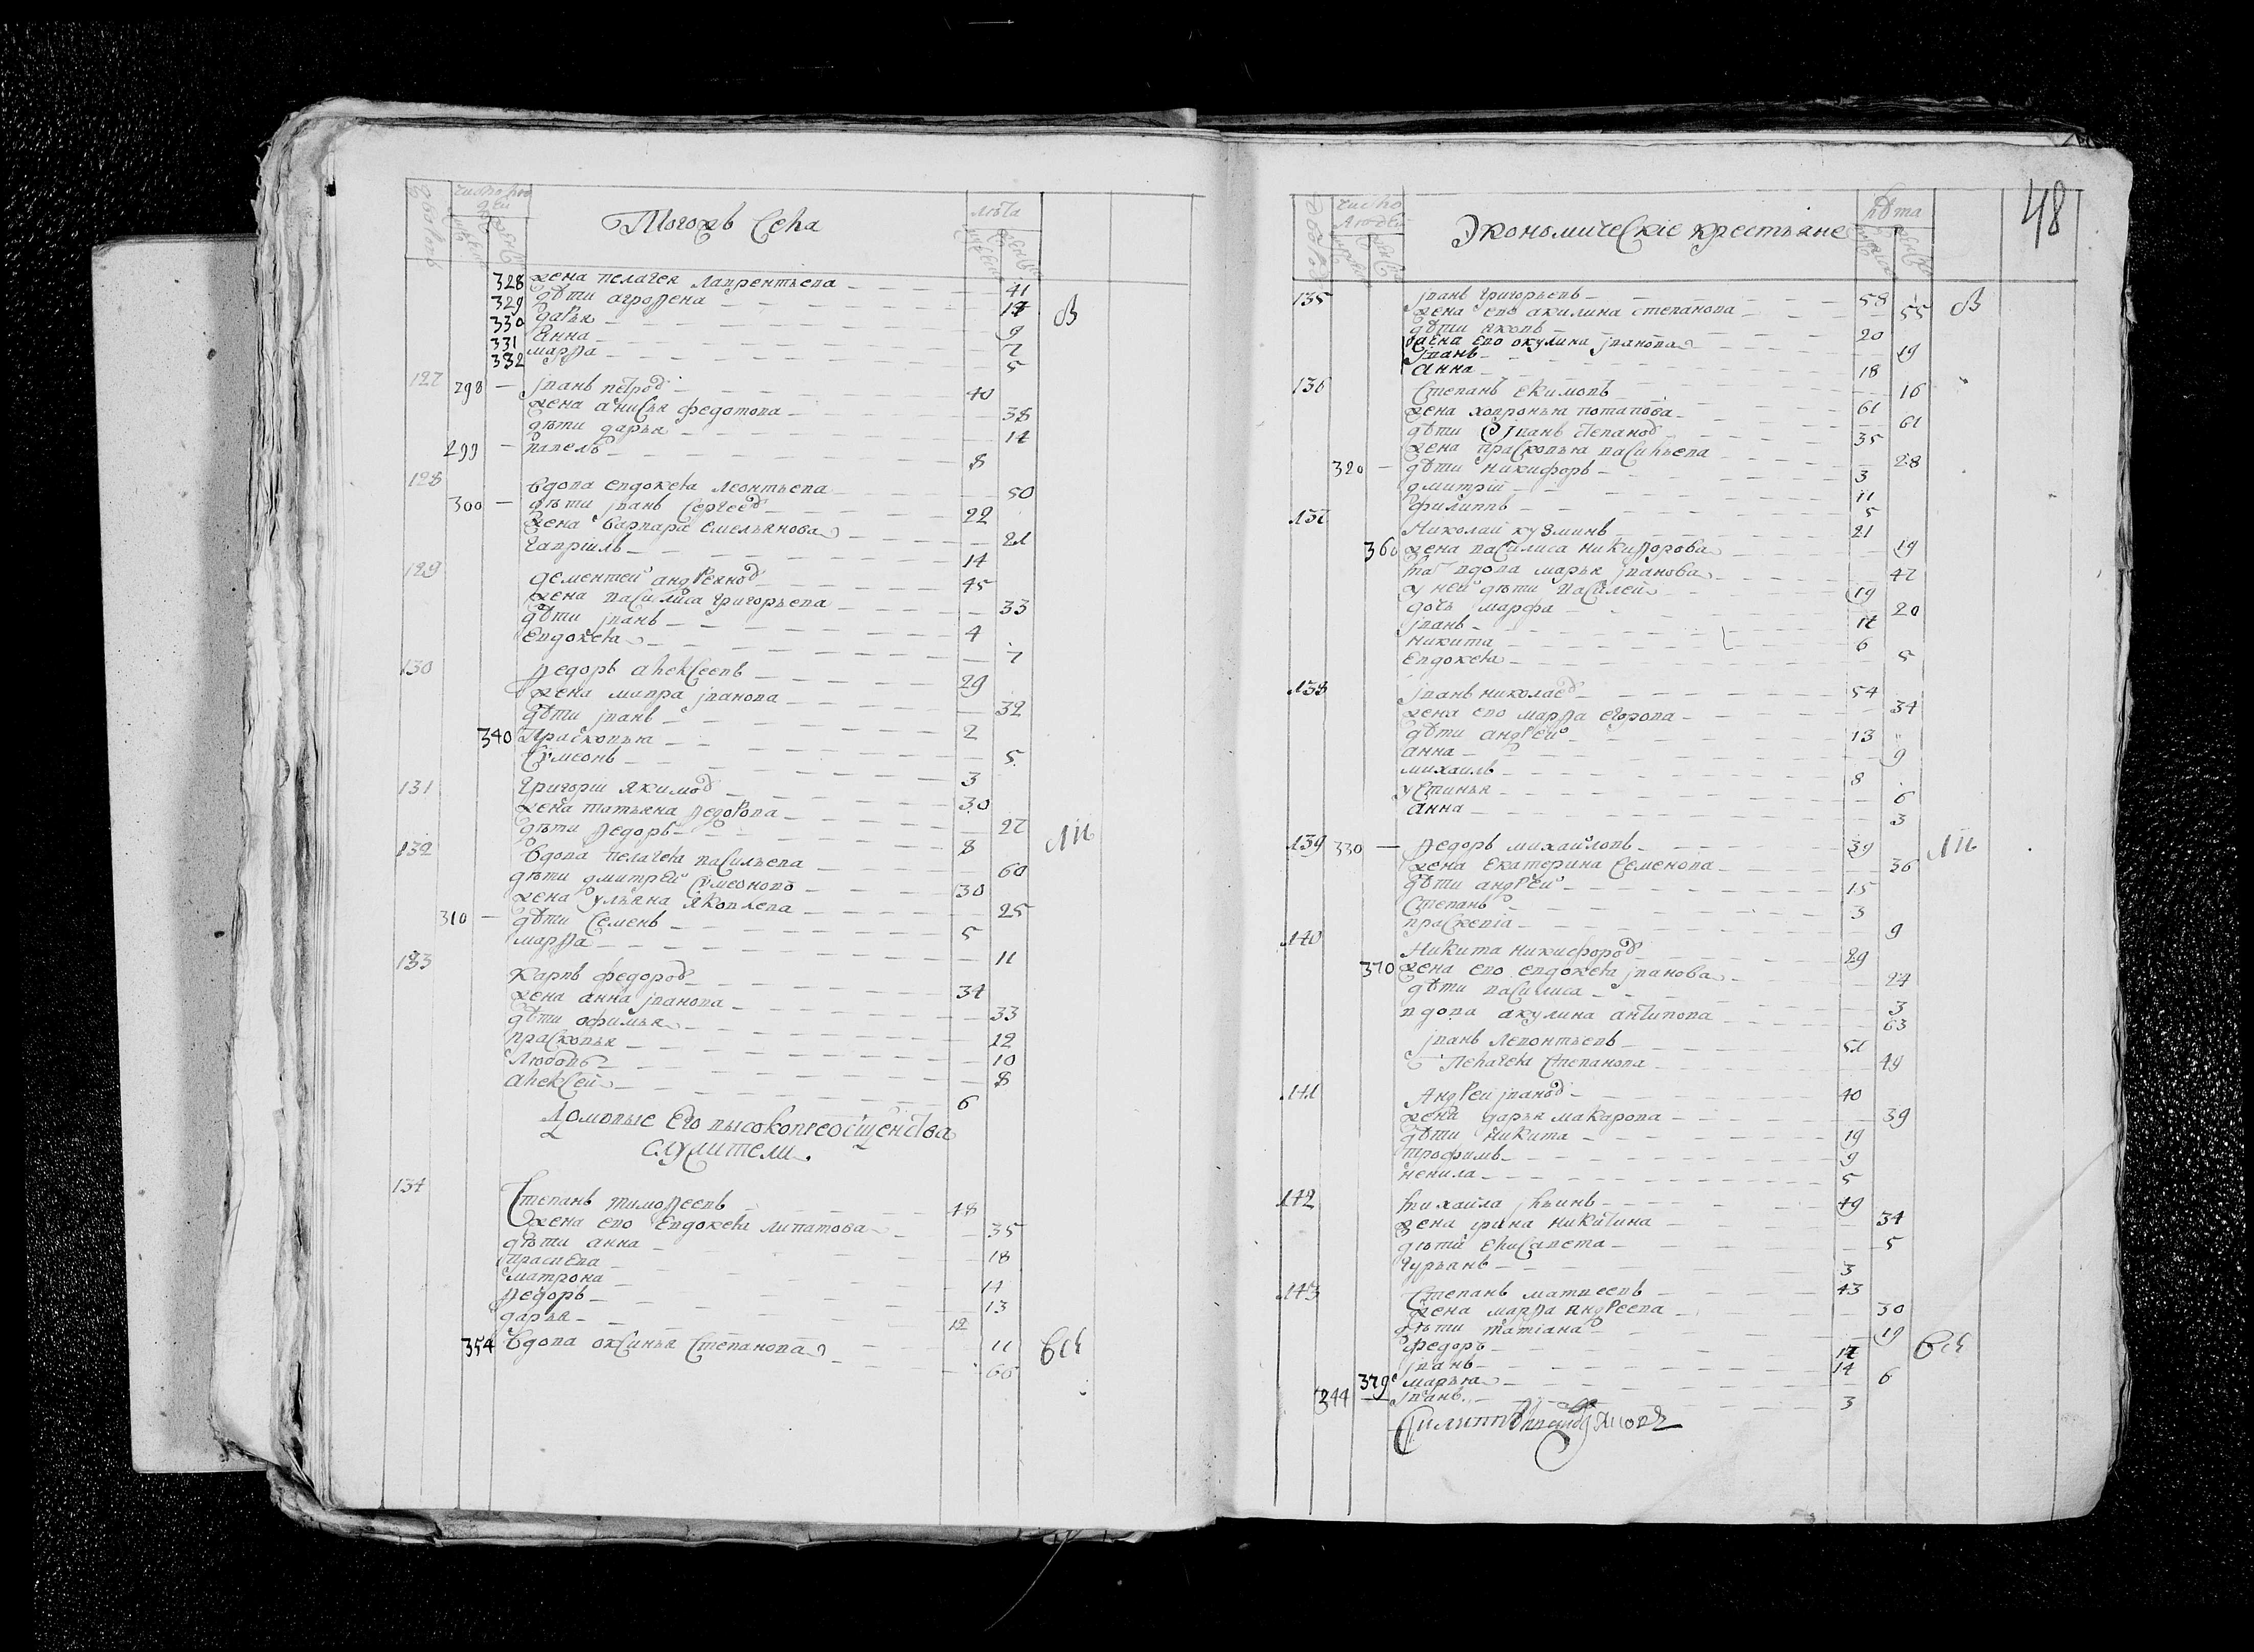 Тогожъ села
число людей
лѣта
328 жена пелагея лаврентьева 41
329 дѣти агрофена 17
330 дарья 9
331 Анна 7
332 марѳа 5
127 298 іванъ петров 40
жена анисья федотова 38
дѣти дарья 14
299 павелъ 8
128 вдова евдокея леонтьева 50
300 дѣти іванъ Сергеев 22
жена варвара емельянова 21
гавріилъ 14
129 дементей андреянов 45
жена василиса григорьева 33
дѣти іванъ 4
евдокея 7
130 ѳедоръ алексеевъ 29
жена мавра іванова 32
дѣти іванъ 2
340 Прасковья 5
Сѵмеонъ 3
131 григорій якимов 30
жена татьяна ѳедорова 27
дѣти ѳедоръ 8
132 вдова пелагея васильева 60
дѣти дмитрей сѵмеоновъ 30
жена ульяна яковлева 25
310 дѣти Семенъ 5
марѳа 11
133 карпъ федоров 34
жена анна іванова 33
дѣти офимья 12
прасковья 10
Любовь 8
алексей 6
Домовые Его высокопреосщенства
служители
134 Степанъ тимоѳеевъ 48
жена ево Евдокея липатова 35
дѣти анна 18
матрона 14
ѳедоръ 12
дарья 11
354 вдова оксинья Степанова 66
48
Экономическіе крестьяне
число людей
лѣта
135 іванъ григорьевъ 58
жена ево акилина степанова 55
дѣти яковъ 20
жена ево окулина іванова 19
іванъ 18
анна 16
136 Степанъ екимовъ 61
жена хавронья потапова 61
дѣти іванъ степанов 35
жена прасковья васильева 28
320 дѣти никифоръ 3
дмитрій 11
филиппъ 5
137 Николай кузминъ 21
360 жена василиса никиѳорова 19
вдова марья іванова 47
у ней дѣти василей 19
дочь марфа 20
іванъ 17
никита 6
евдокея 5
138 іванъ николаев 54
жена ево марѳа егорова 34
дѣти андрей 13
анна 9
михаилъ 8
устинья 6
анна 3
139 330 ѳедоръ михайловъ 39
жена екатерина семенова 36
дѣти андрей 15
Степанъ 3
праскевіа 9
140 Никита никифоров 29
370 жена ево евдокея іванова 24
дѣти василиса 3
вдова акулина антипова 63
іванъ Леонтьевъ 51
Пелагея Степанова 49
141 Андрей іванов 40
жена дарья макарова 39
дѣти никита 19
трофимъ 9
ненила 5
142 михаила ільинъ 49
жена ірина никитина 34
дѣти елисавета 5
гурьянъ 3
143 Степанъ матвеевъ 43
жена марѳа андреева 30
дѣти татіана 19
федоръ 17
іванъ 14
379 марья 6
344 іванъ 3